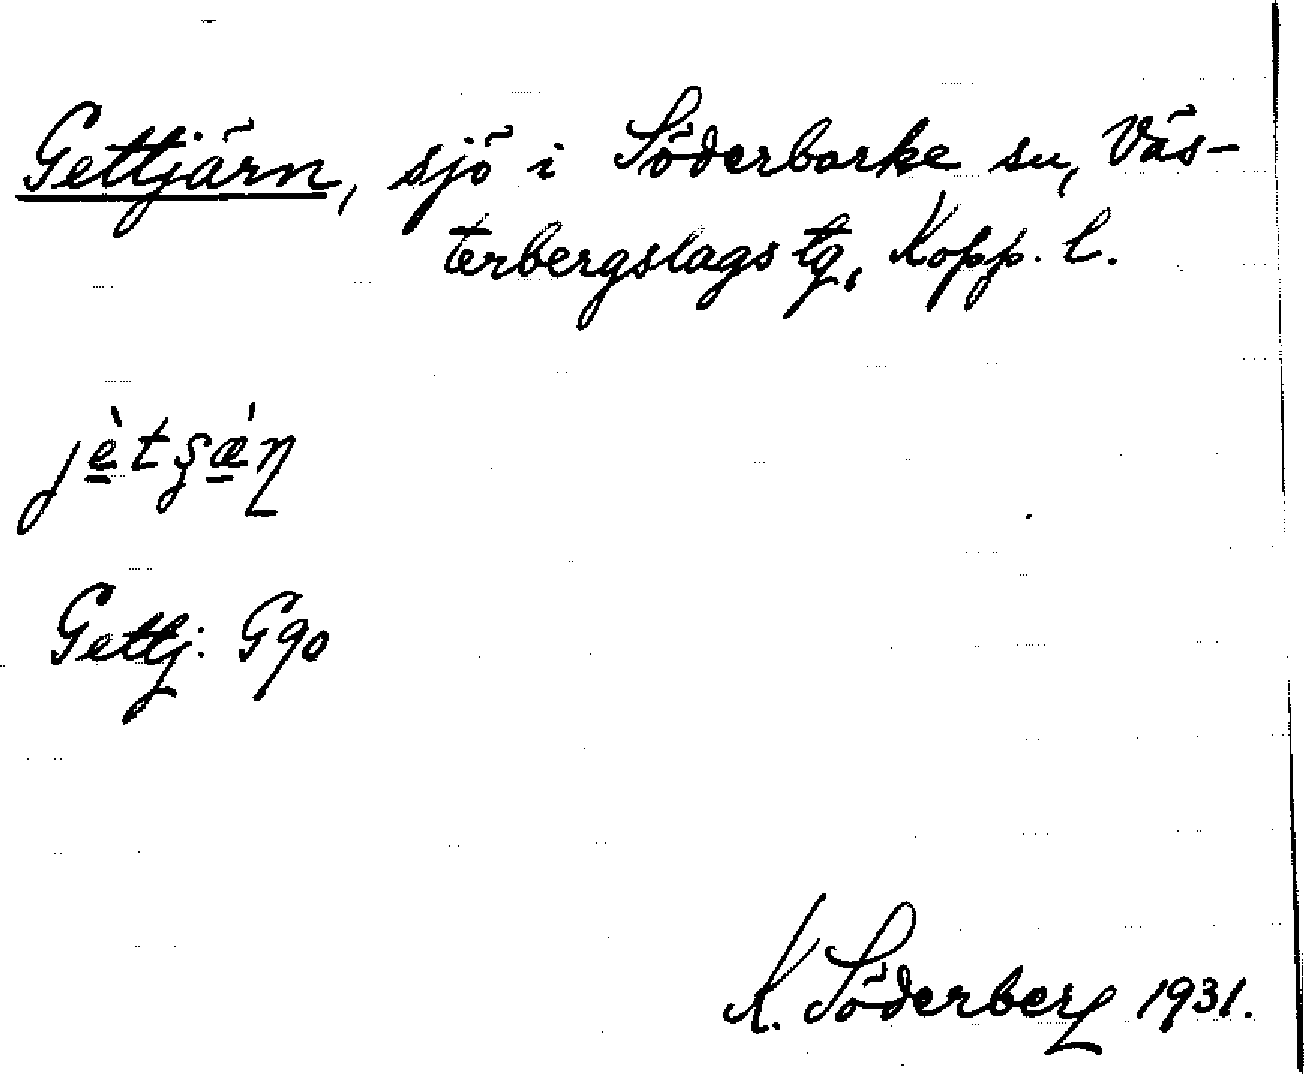 Gettjärn, sjö i Söderbarke sn, Väs-
terbergslags tg, Kopp. l.
Gettj: G90
K. Söderberg 1931.